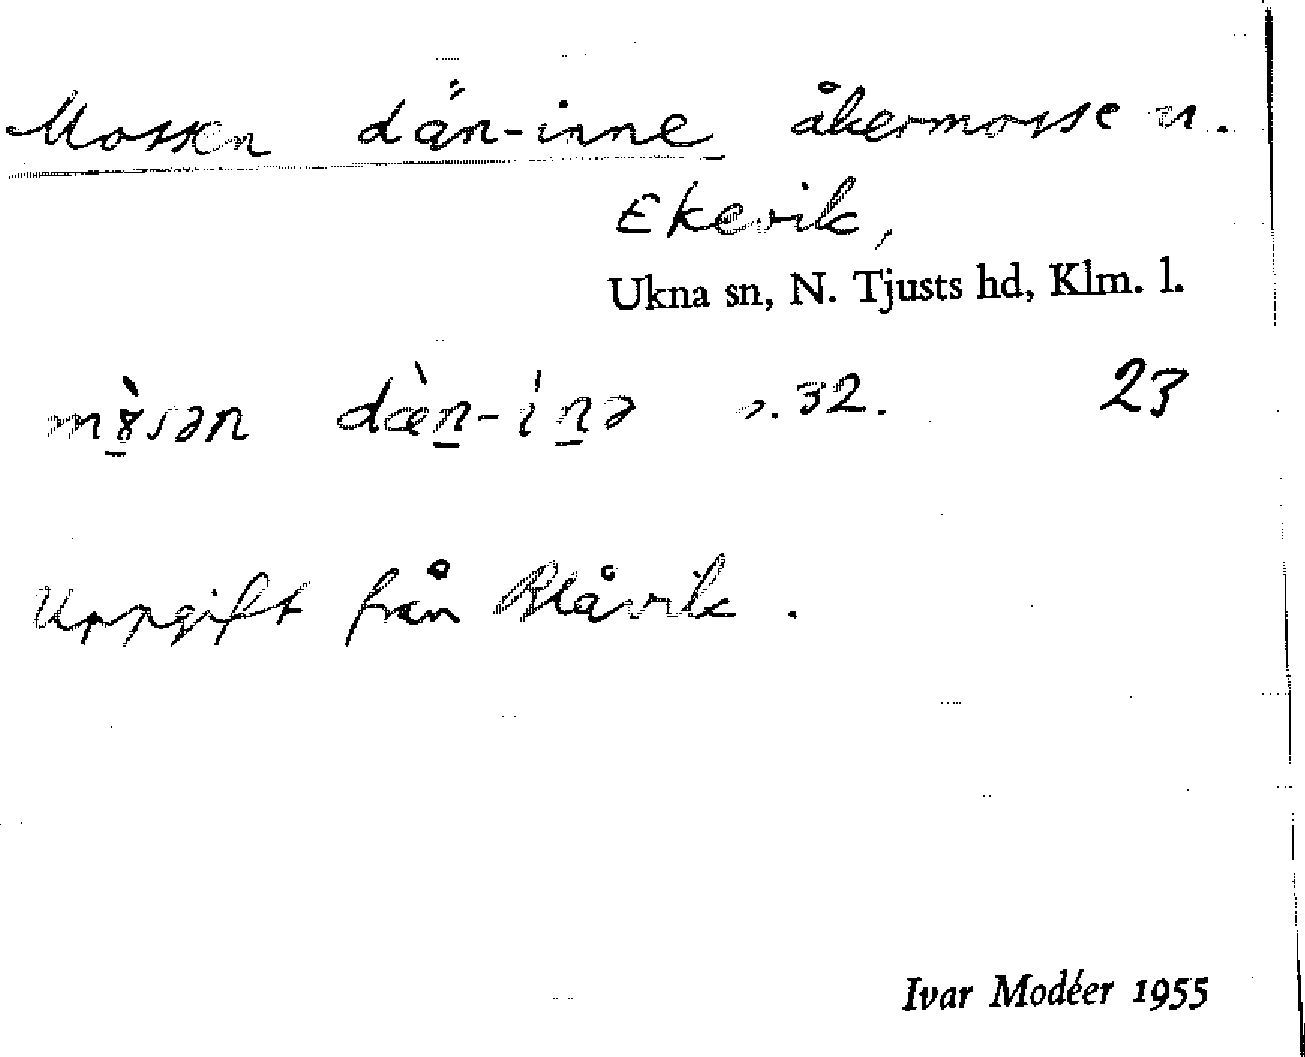 Mossen dän-inne åkermosse u.
Ekevik,
Ukna sn, N. Tjusts hd, Klm. l.
dæ̀n̲-ín̲ə s. 32. 23
Uppgift från Blåvik.
Ivar Modéer 1955